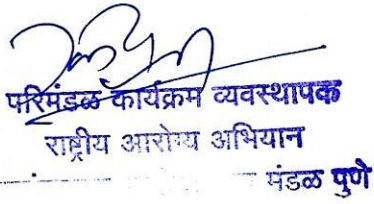 परिमंडळ कार्यक्रम व्यवस्थापक
राष्ट्रीय आरोग्य अभियान
मंडळ पुणे